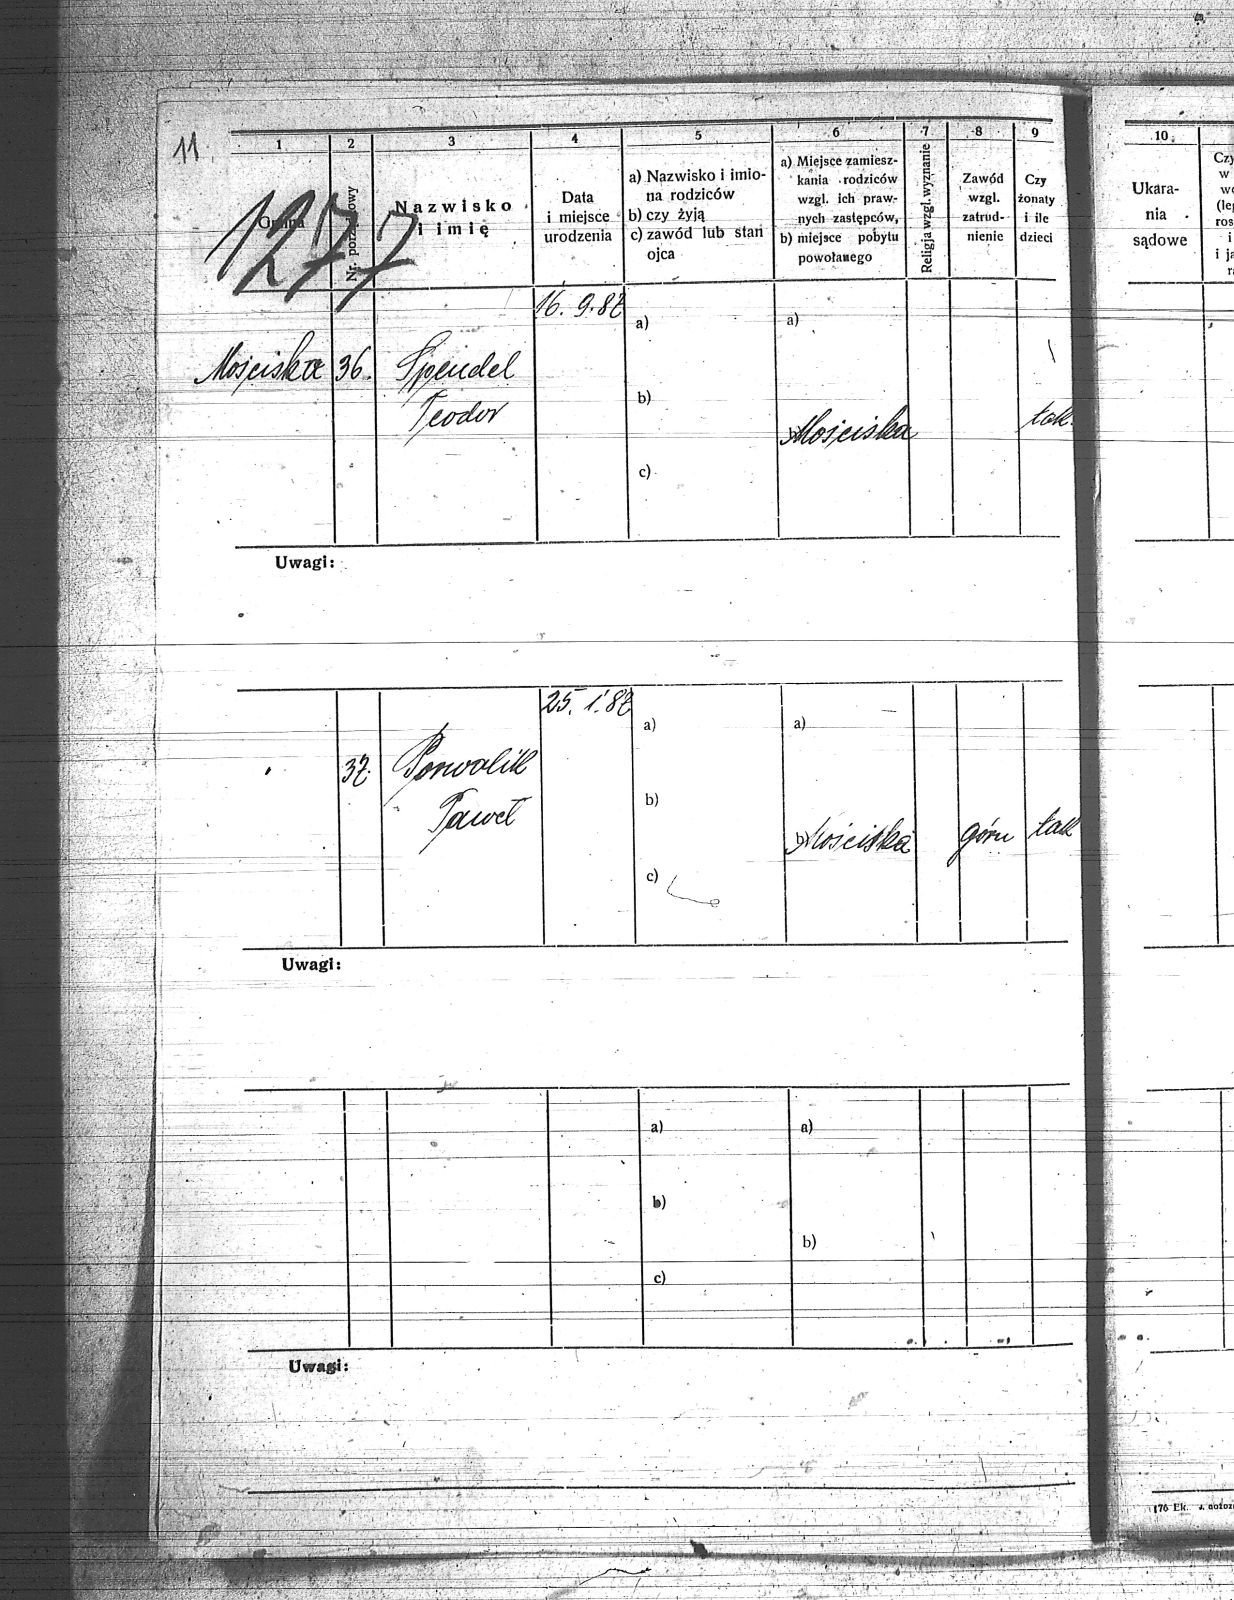 11
1 2 3 4 5 6 7 8 9 10
1277
Gmina
Nr. porządkowy
Nazwisko
i imię
Data
i miejsce
urodzenia
a) Nazwisko i imio-
na rodziców
b) czy żyją
c) zawód lub stan
ojca
a) Miejsce zamiesz-
kania rodziców
wzgl. ich praw-
nych zastępców,
b) miejsce pobytu
powołanego
Religja wzgl. wyznanie
Zawód
wzgl.
zatrud-
nienie
Czy
żonaty
i ile
dzieci
Ukara-
nia
sądowe
Mościska 36. Spendel
Teodor
16. 9. 87
a)
b)
c)
a)
b) Mościska
tak.
Uwagi:
37. Porwolik
Paweł
25. 1. 87
a)
b)
c)
a)
b) Mościska
górn
tak
Uwagi:
a)
b)
c)
a)
b)
Uwagi:
176 Ek.